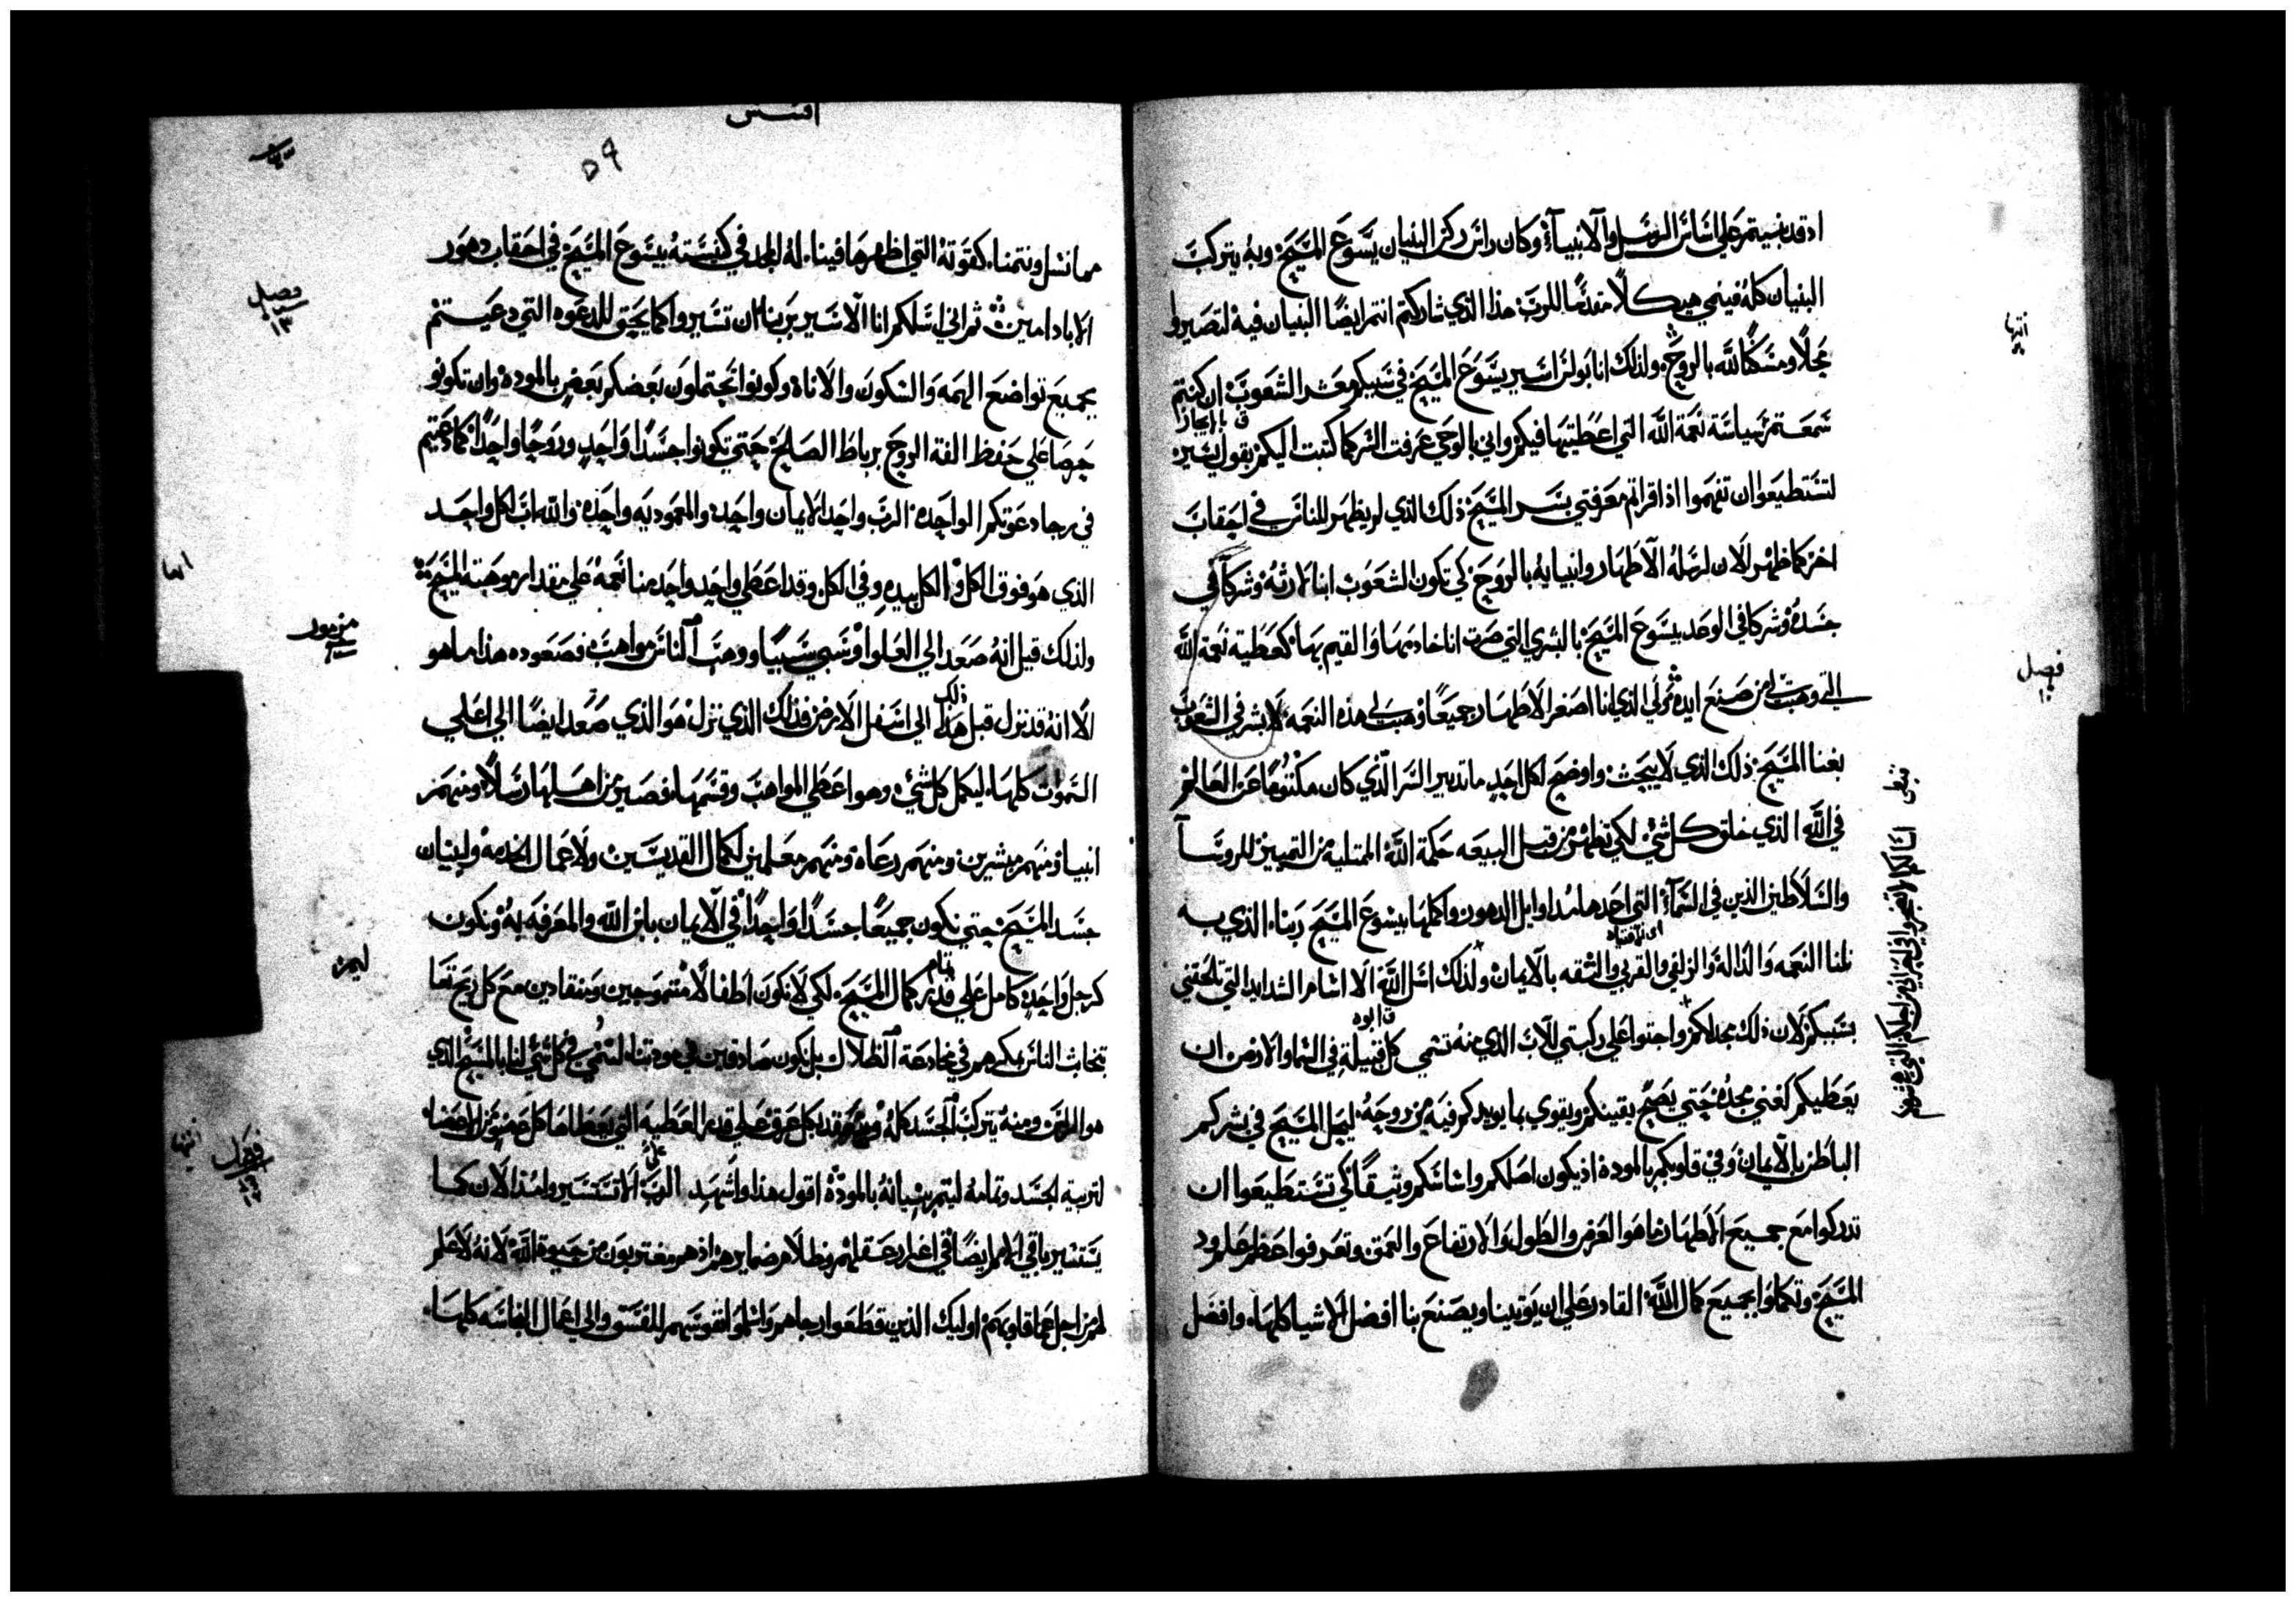 اد قد بنيتم علي اساس الرسل والانبياء وكان راس ركن البنيان يسوع المسيح وبه يتركب
البنيان كله فينمي هيكلا مقدسا للرب هذا الذي شاركتم انتم ايضا البنيان فيه لتصيروا
محلا ومسكنا لله بالروح ولذلك انا بولس اسير يسوع المسيح في سببكم معشر الشعوب ان كنتم
سمعتم سياسة نعمة الله التي اعطيتها فيكم واني بالوحي عرفت السر كما كتبت اليكم بقول يسير
ق بايجاز
لتستطيعوا ان تفهموا اذا قراتم معرفتي بسر المسيح ذلك الذي لم يظهر للناس في احقاب
اخر كما ظهر الان لرسله الاطهار وانبيايه بالروح كي تكون الشعوب ابنا لارثه وشركا في
جسده وشركا في الوعد بيسوع المسيح بالبشري التي صرت انا خادمها والقيم بها كعطية نعمة الله
التي وهبت لي من صنع ايده الذي انا اصغر الاطهار جميعا وهب لي هذه النعمه لابشر في الشعوب
بغنا المسيح ذلك الذي لا يبحث واوضح لكل احد ما تدبير السر الذي كان مكتوما عن العالم
في الله الذي خلق كل شي لكي تظهر من قبل البيعه حكمة الله الممتليه من التمييز للروسا
والسلاطين الذين في السماء التي اعدها منذ اوايل الدهور واكملها بيسوع المسيح ربنا الذي به
نلنا النعمه والدالة والزلفي والقربي والثقه بالايمان ولذلك اسل الله الا اسام الشدايد التي تلحقني
بسببكم لان ذلك مجد لكم واجثوا علي ركبتي للاب الذي منه تسمي كل قبيلة في السما والارض ان
ق ابوه
يعطيكم كغني مجده حتي يصح يقينكم ويقوي بما يويدكم فيه من روحه ليحل المسيح في بشركم
الباطن بالايمان وفي قلوبكم بالموده اذ يكون اصلكم واساسكم وثيقا كي تستطيعوا ان
تدركوا مع جميع الاطهار ما هو العرض والطول والارتفاع والعمق وتعرفوا عظم علم ود
المسيح وتكملوا بجميع كمال الله القادر علي ان يوتينا ويصنع بنا افضل الاشيا كلها وافضل
فصل
افسس
٥٩
مما نسل ونتمنا كقوته التي اظهرها فينا له المجد في كنيسته بيسوع المسيح في احقاب دهور
الاباد امين ثم اني اسلكم انا الاسير بربنا ان تسيروا كما يحق للدعوه التي دعيتم
بجميع تواضع الهمه والسكون والاناه وكونوا تحتملون بعضكم بعض بالموده وان تكونو
حرصا علي حفظ الفة الروح برباط الصلح حتي تكونوا جسدا واحد وروحا واحدا كما دعيتم
في رجا دعوتكم الواحده الرب واحد الايمان واحد والمعموديه واحده والله اب كل واحد
الذي هو فوق الكل والكل بيده وفي الكل وقد اعطي واحد واحد منا نعمه علي مقدار موهبة المسيح
ولذلك قيل انه صعد الي العلوا وسبي سبيا ووهب الناس مواهب فصعوده هذا ما هو
الا انه قد نزل قبل ذلك الي اسفل الارض فذلك الذي نزل هو الذي صعد ايضا الي اعلي
السموات كلها ليكمل كل شي وهو اعطي المواهب وقسمها فصير من اهلها رسلا ومنهم
انبيا ومنهم مبشرين ومنهم رعاه ومنهم معلمين لكمال القديسين ولاعمال الخدمه ولبنيان
جسد المسيح حتي نكون جميعا جسدا واحدا في الايمان بابن الله والمعرفه به ونكون
كرجل واحد كامل علي قدر تمام كمال المسيح لكي لا نكون اطفالا متموجين ومنقادين مع كل ريح تعا
الناس بمكرهم في مخادعة الظلال بل نكون صادقين في مودتنا لننمي في كل شي لنا بالمسيح الذي
هو الراس ومنه يتركب الجسد كله ويعقد بكل عرق علي قدر العطيه التي يعطاها كل عضو من الاعضا
لتربية الجسد وتمامه ليتم بنيانه بالمودة اقول هذا واشهد علي الرب الا تستسيروا منذ الان كما
يستسير باقي الامم ايضا في اغترار عقلهم وظلام ضمايرهم اذ هم مغتربون من حيوة الله لانه لا علم
لهم من اجل عما قلوبهم اوليك الذين قطعوا رجاهم واسلموا نفوسهم للفسق والي اعمال النجاسه كلها
فصل
١٣
مزمور
فصل